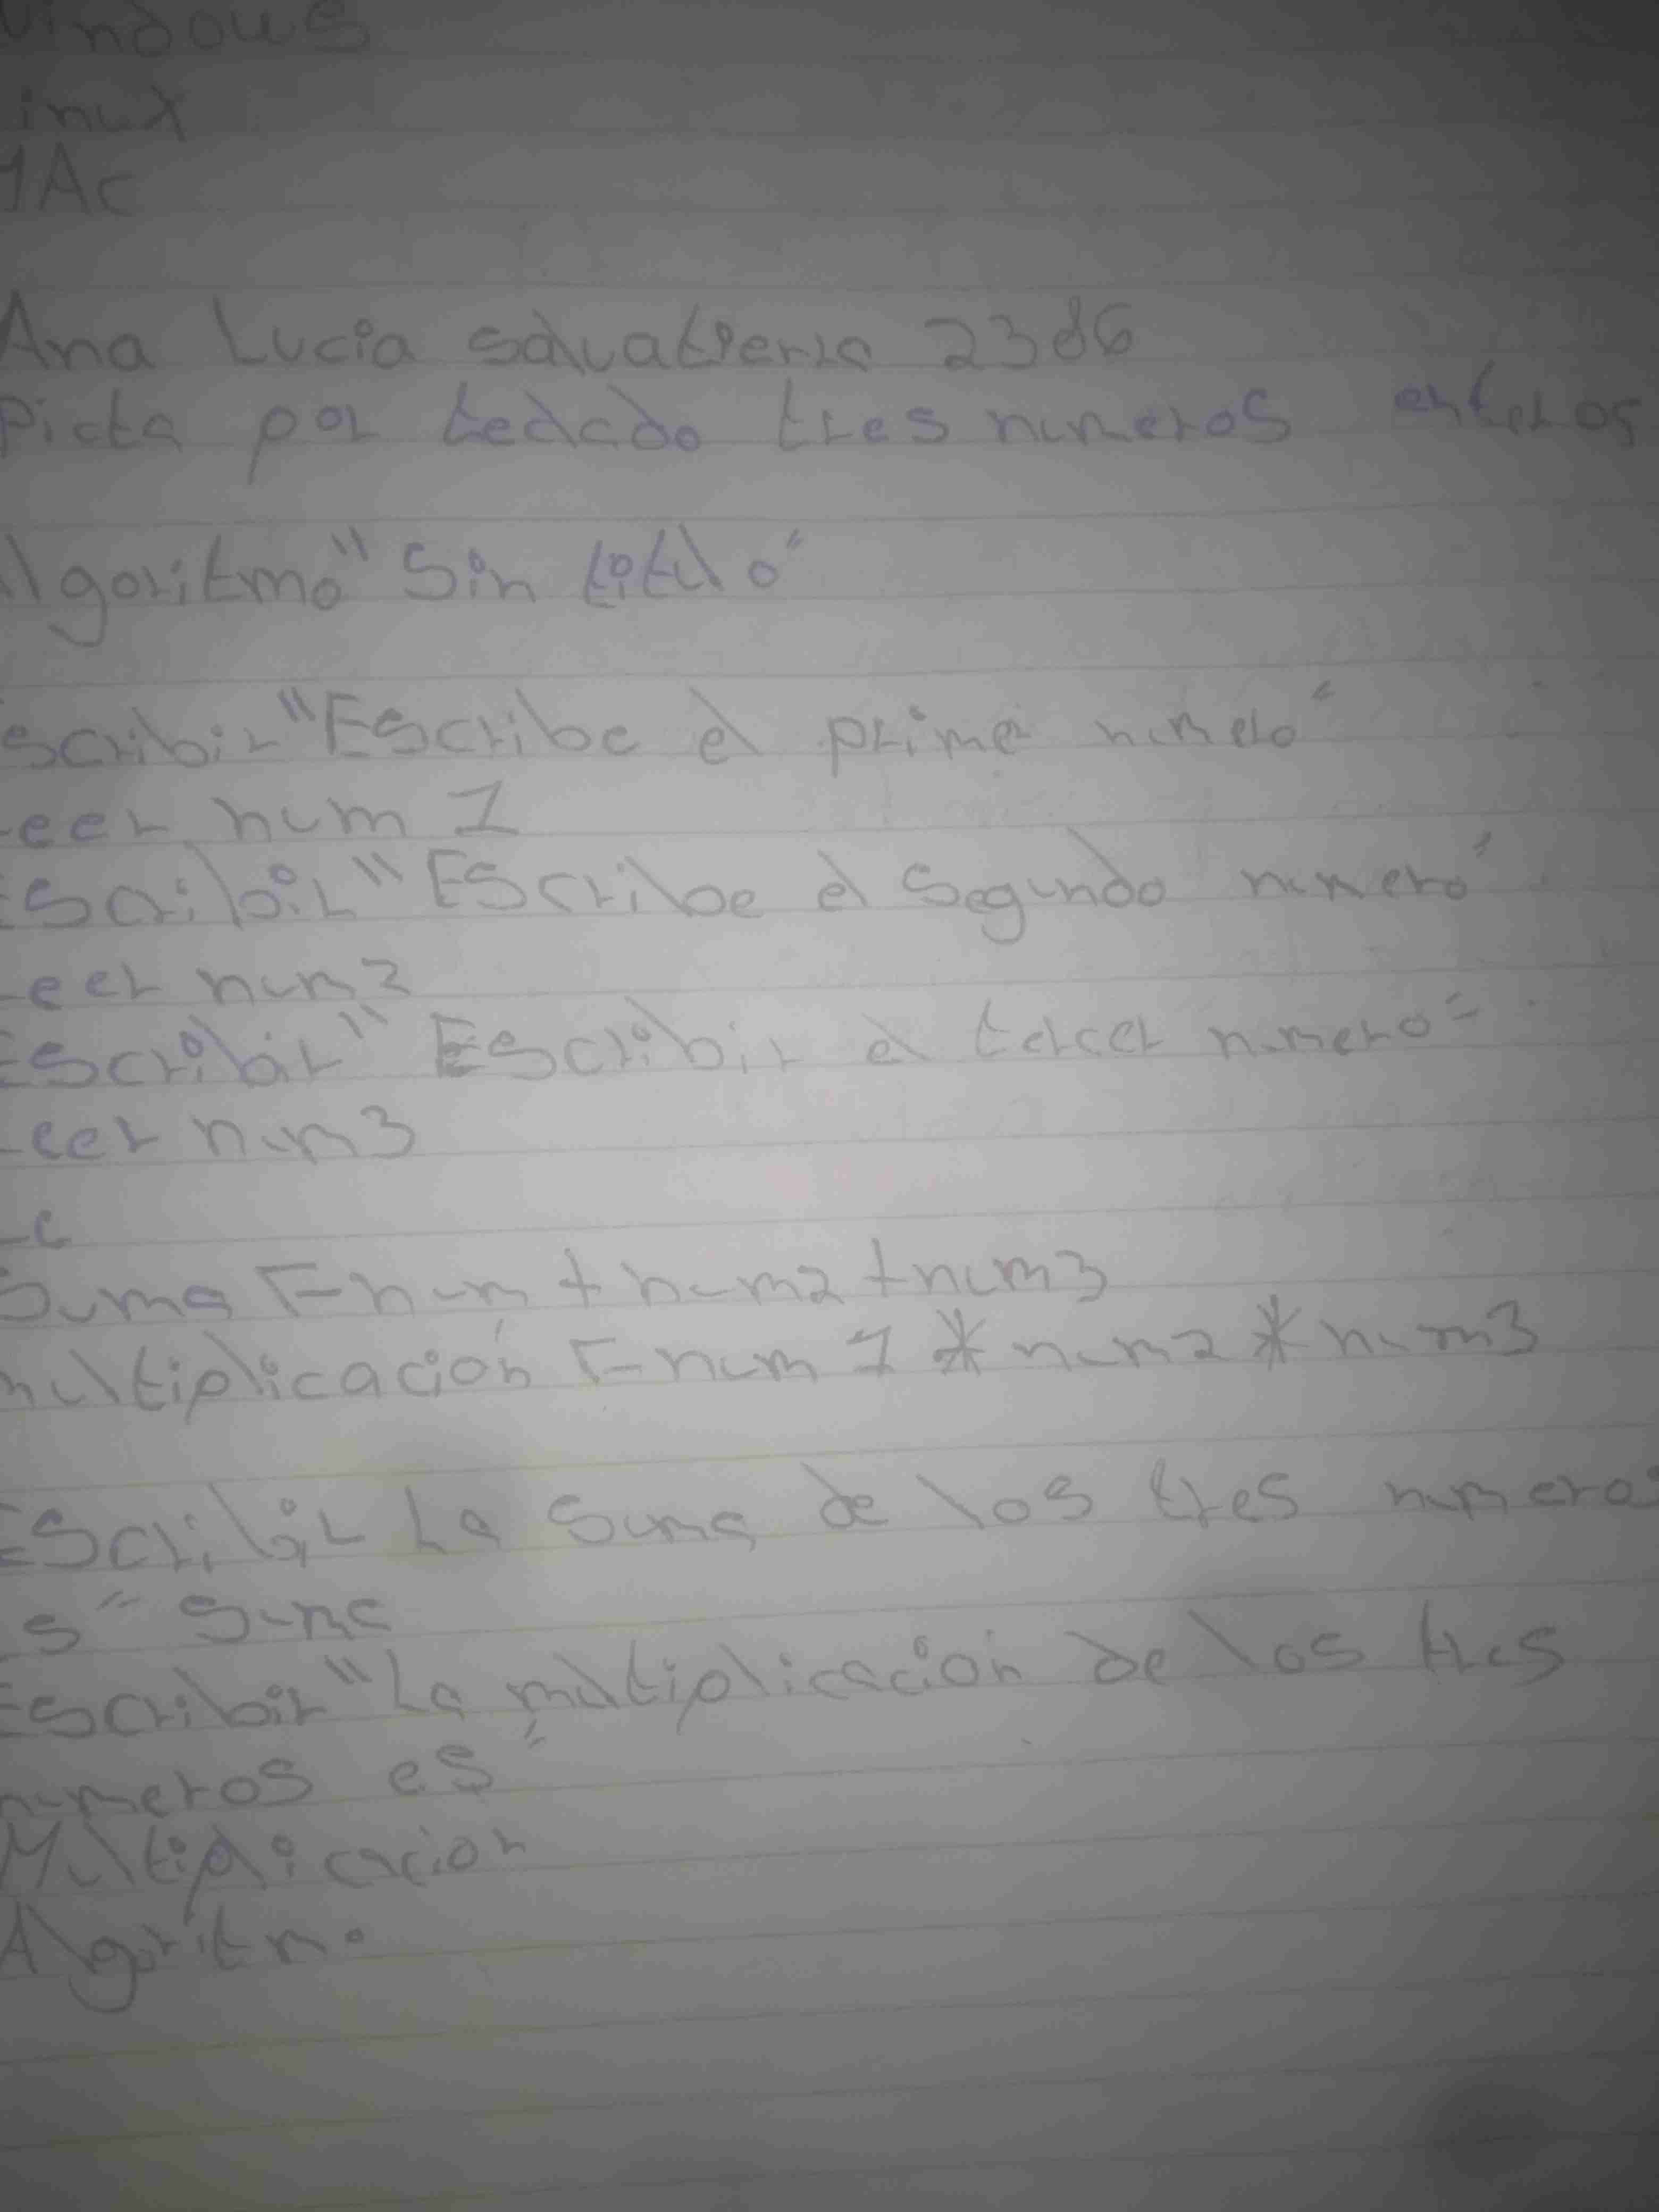 Windows
inux
MAc
Ana Lucia Salvatierra 2386
Picta por teclado tres numeros enteros
lgoritmo "Sin titulo"
scribir "Escribe el primer numero"
Leer num 1
Escribir "Escribe el Segundo numero"
Leer num2
Escribir "Escribir el tercer numero"
Leer num3
Suma ← num + num2 + num3
multiplicación ← num 1 * num2 * num3
Escribir La Suma de los tres numeros
s" Suma
Escribir "La multiplicación de los tres
numeros es"
Multiplicacion
Algoritmo